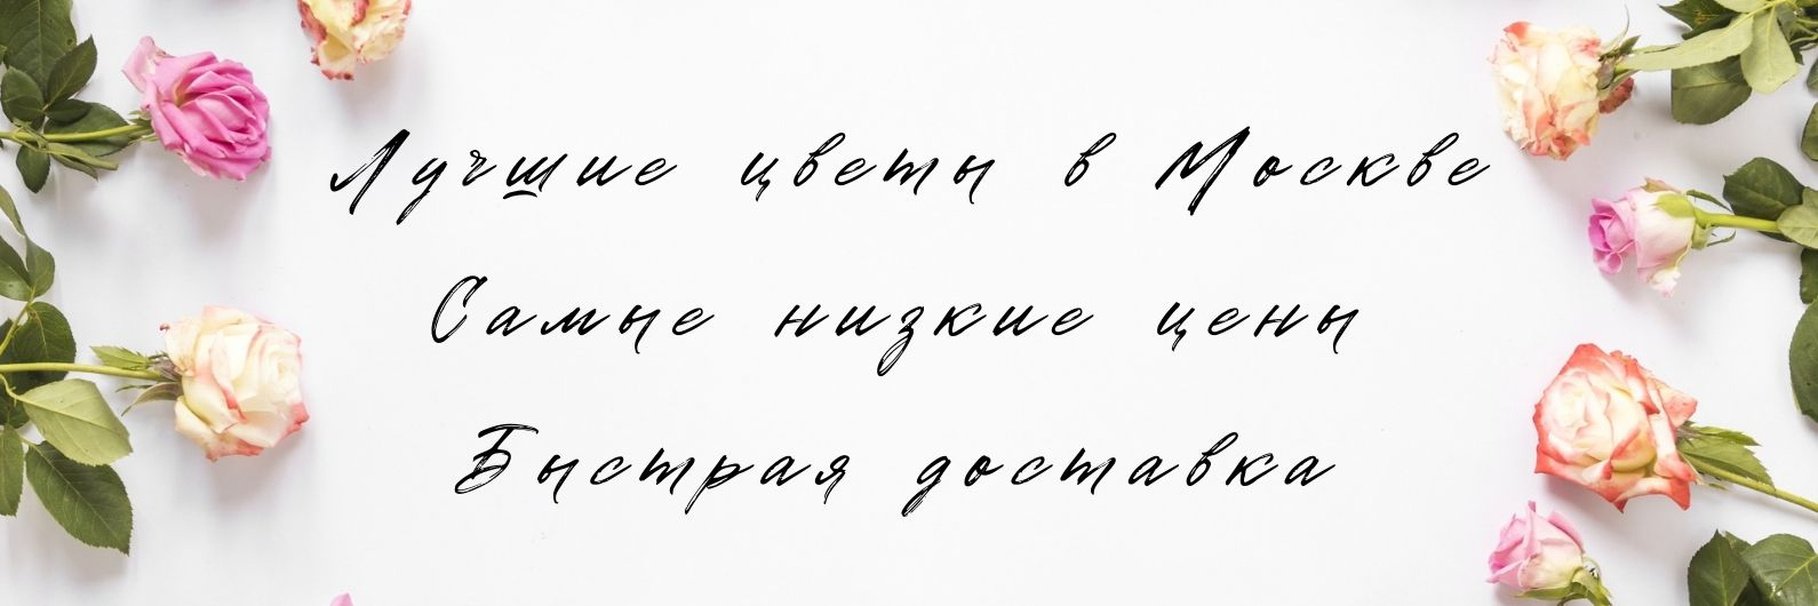 Лучшие цветы в Москве
Самые низкие цены
Быстрая доставка